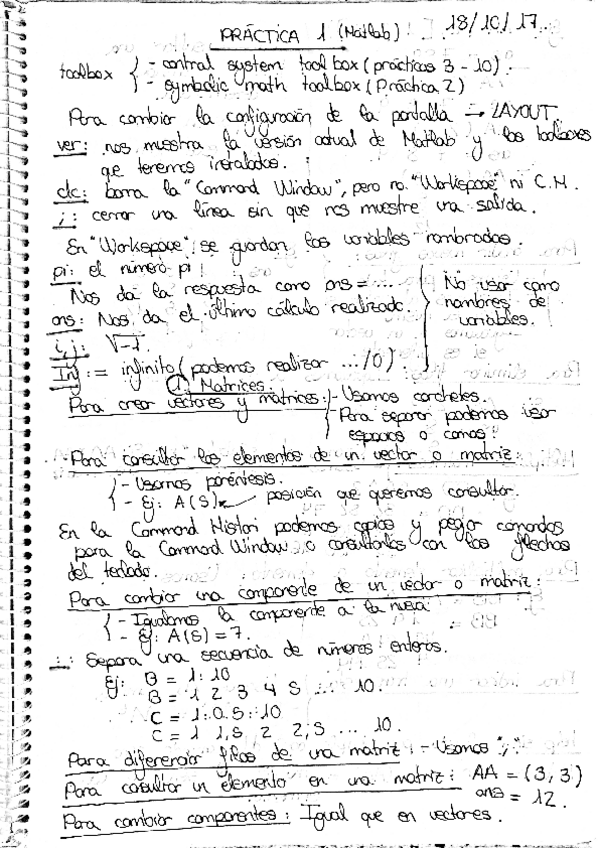 PRÁCTICA 1 (Matlab) 18/10/17
toolbox { - control system tool box (prácticas 3 - 10).
- symbolic math toolbox (Práctica 2)
Para cambiar la configuración de la pantalla → LAYOUT.
ver: nos muestra la versión actual de Matlab y los toolboxes
que tenemos instalados.
clc: borra la "Command Window", pero no "Workspace" ni C.H.
; : cerrar una línea sin que nos muestre una salida.
En "Workspace" se guardan las variables nombradas.
pi: el número pi
Nos da la respuesta como ans = ....
ans: Nos da el último cálculo realizado.
i, j: √-1
} No usar como
nombres de
variables.
Inf := infinito (podemos realizar .../0)
1. Matrices.
Para crear vectores y matrices: { - Usamos corchetes.
- Para separar podemos usar
espacios o comas.
Para consultar los elementos de un vector o matriz:
{ - Usamos paréntesis.
- Ej: A(5) ← posición que queremos consultar.
En la Command Histori podemos copiar y pegar comandos
para la Command Window, o consultarlos con las flechas
del teclado.
Para cambiar una componente de un vector o matriz:
{ - Igualamos la componente a la nueva.
- Ej: A(5) = 7.
: : Separa una secuencia de números enteros.
Ej: B = 1:10
B = 1 2 3 4 5 ... 10.
C = 1:0.5:10
C = 1 1,5 2 2,5 ... 10.
Para diferenciar filas de una matriz: - Usamos ";"
Para consultar un elemento en una matriz: AA = (3, 3)
ans = 12.
Para cambiar componentes: Igual que en vectores.